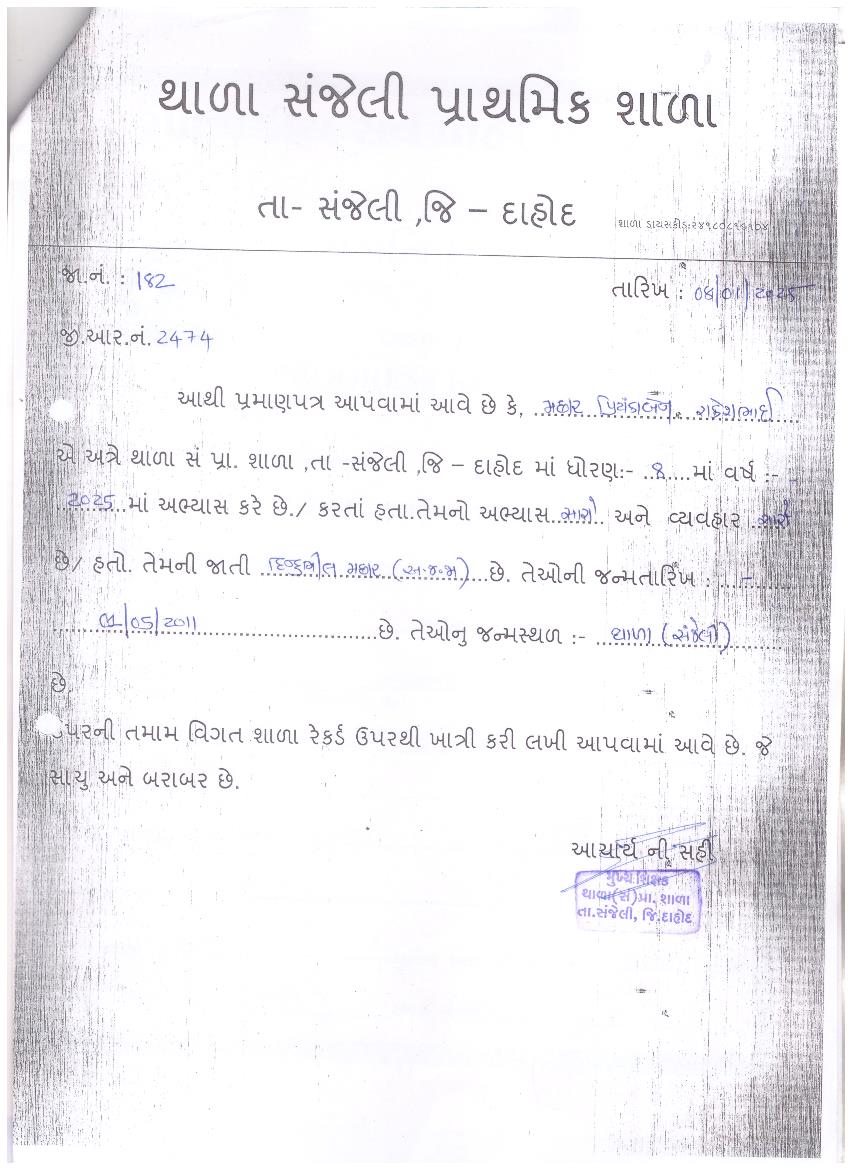 થાળા સંજેલી પ્રાથમિક શાળા
તા- સંજેલી ,જિ – દાહોદ
શાળા ડાયસકોડ:૨૪૧૮૦૮૧૭૧૦૪
જા.નં. : 182
તારિખ : 04/01/2025
જી.આર.નં. 2474
આથી પ્રમાણપત્ર આપવામાં આવે છે કે, મછાર પ્રિયંકાબેન રાકેશભાઈ
એ અત્રે થાળા સં પ્રા. શાળા ,તા -સંજેલી ,જિ – દાહોદ માં ધોરણ:- ..8....માં વર્ષ :-
2025..માં અભ્યાસ કરે છે./ કરતાં હતા.તેમનો અભ્યાસ..સારો.. અને વ્યવહાર ..સારો
છે/ હતો. તેમની જાતી હિન્દુભીલ મછાર (અ.જ.જા)...છે. તેઓની જન્મતારિખ : ....-
01/05/2011 ...છે. તેઓનુ જન્મસ્થળ :- ...થાળા (સંજેલી)
છે.
ઉપરની તમામ વિગત શાળા રેકર્ડ ઉપરથી ખાત્રી કરી લખી આપવામાં આવે છે. જે
સાચુ અને બરાબર છે.
આચાર્ય ની સહી
મુખ્ય શિક્ષક
થાળા(સં)પ્રા. શાળા
તા.સંજેલી, જિ.દાહોદ